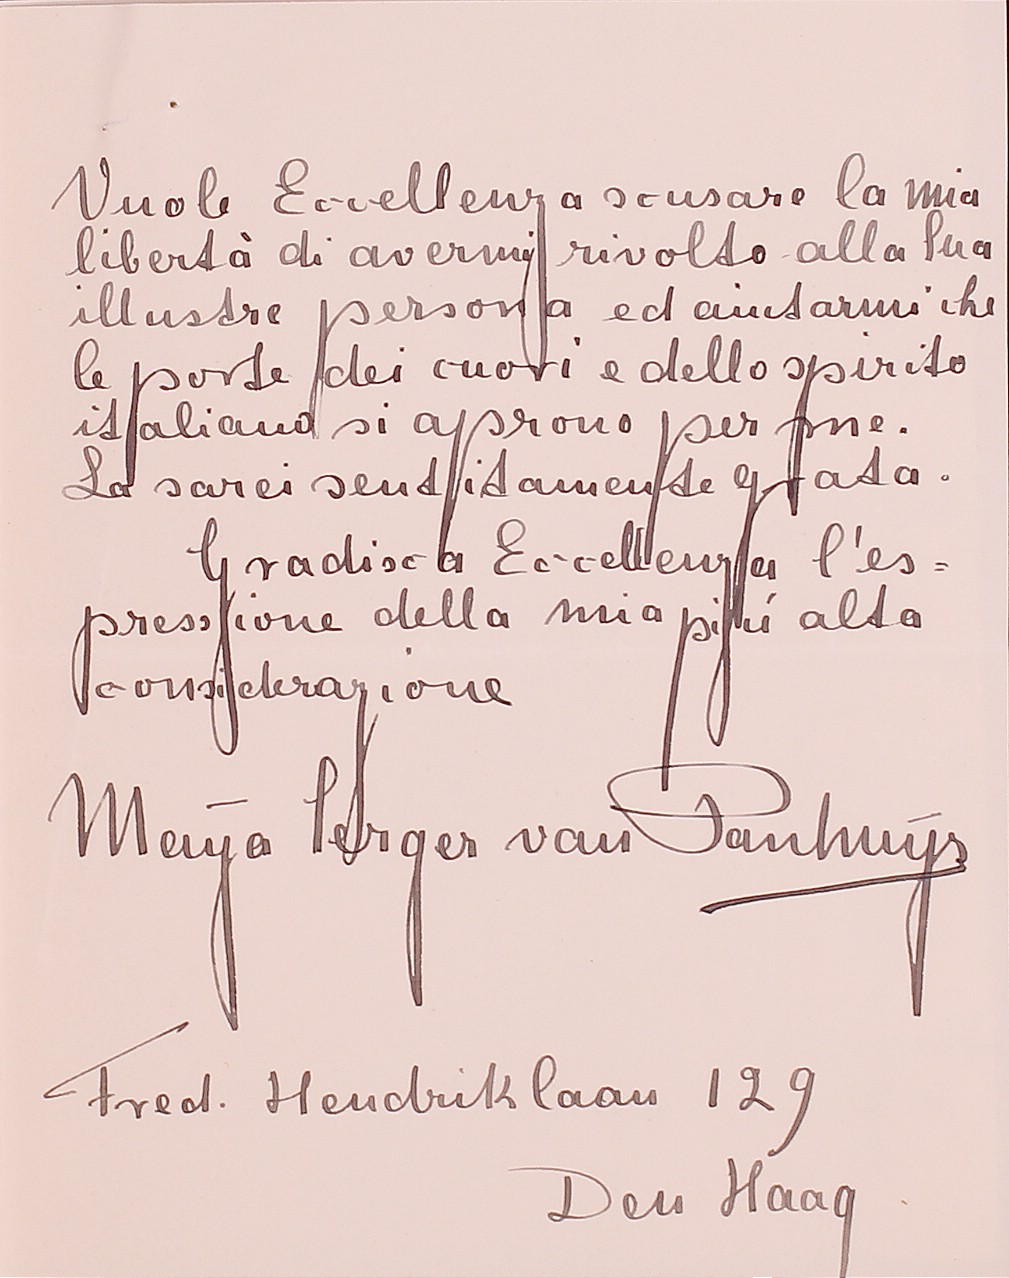 Vuole Eccellenza scusare la mia
libertà di avermi rivolto alla Sua
illustre persona ed aiutarmi che
le porte dei cuori e dello spirito
italiano si aprono per me.
Le sarei sentitamente grata.
Gradisca Eccellenza l'es=
pressione della mia piú alta
considerazione
van Panhuÿs
Fred. Hendriklaan 129
Den Haag